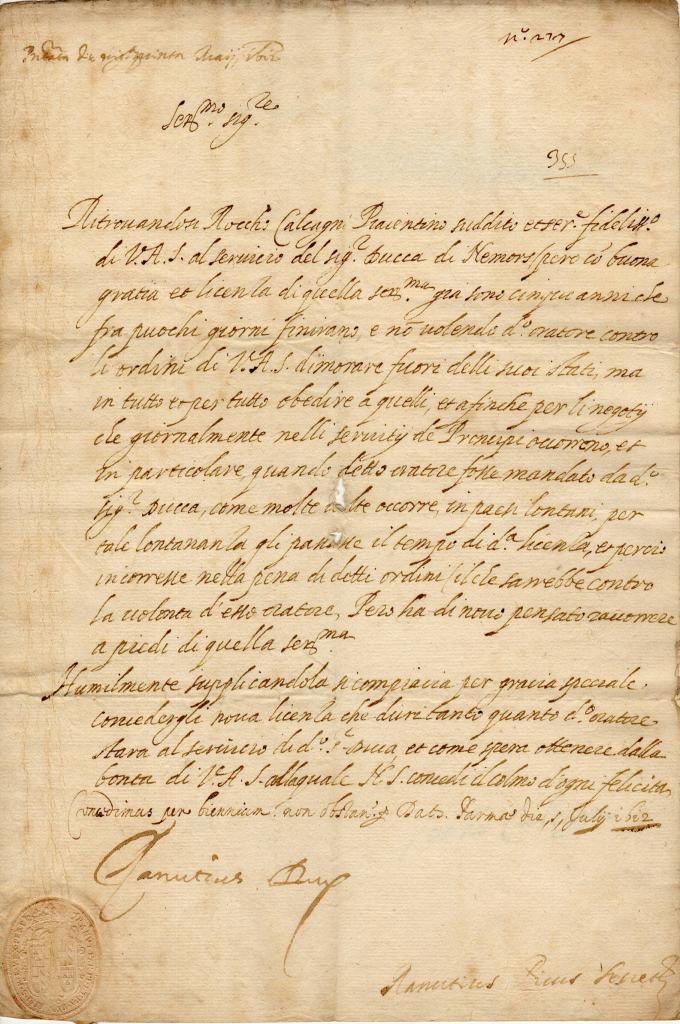 n.º 277
die quinta Maij 1612
Ser.mo Sig.re
355
Ritrovandosi Roccho Calcagni Piacentino suddito et ser.e fideliss.o
di V.A.S. al servicio del sig.r Ducca di Nemors (però cõ buona
gratia et licenza di quella ser.ma già sono cinque anni che
fra puochi giorni finirano, e nõ volendo d.o oratore contro
li ordini di V.A.S. dimorare fuori delli suoi stati, ma
in tutto et per tutto obedire a quelli, et afinche per li negotij
che giornalmente nelli servitij de Prencipi occorreno, et
in particolare, quando detto oratore fosse mandato da d.o
sig.r Ducca, come molte volte occorre, in paesi lontani, per
tale lontananza gli passasse il tempo di d.a licenza, et perciò
incorresse nella pena di detti ordini (il che sarrebbe contro
la volontà d'esso oratore, Però ha di novo pensato raccorrere
a piedi di quella ser.ma
Humilmente supplicandola si compiacia per gracia speciale
concedergli nova licenza che duri tanto quanto d.o oratore
stara al servicio di d.o s.r Ducca et come spera ottenere dalla
bontà di V.A.S. allaquale N.S. conciedi il colmo d'ogni felicità
Concedimus per biennium non obstan. Dat. Parmæ die 5 Julij 1612
Ranutius Dux
Ranutius Picus